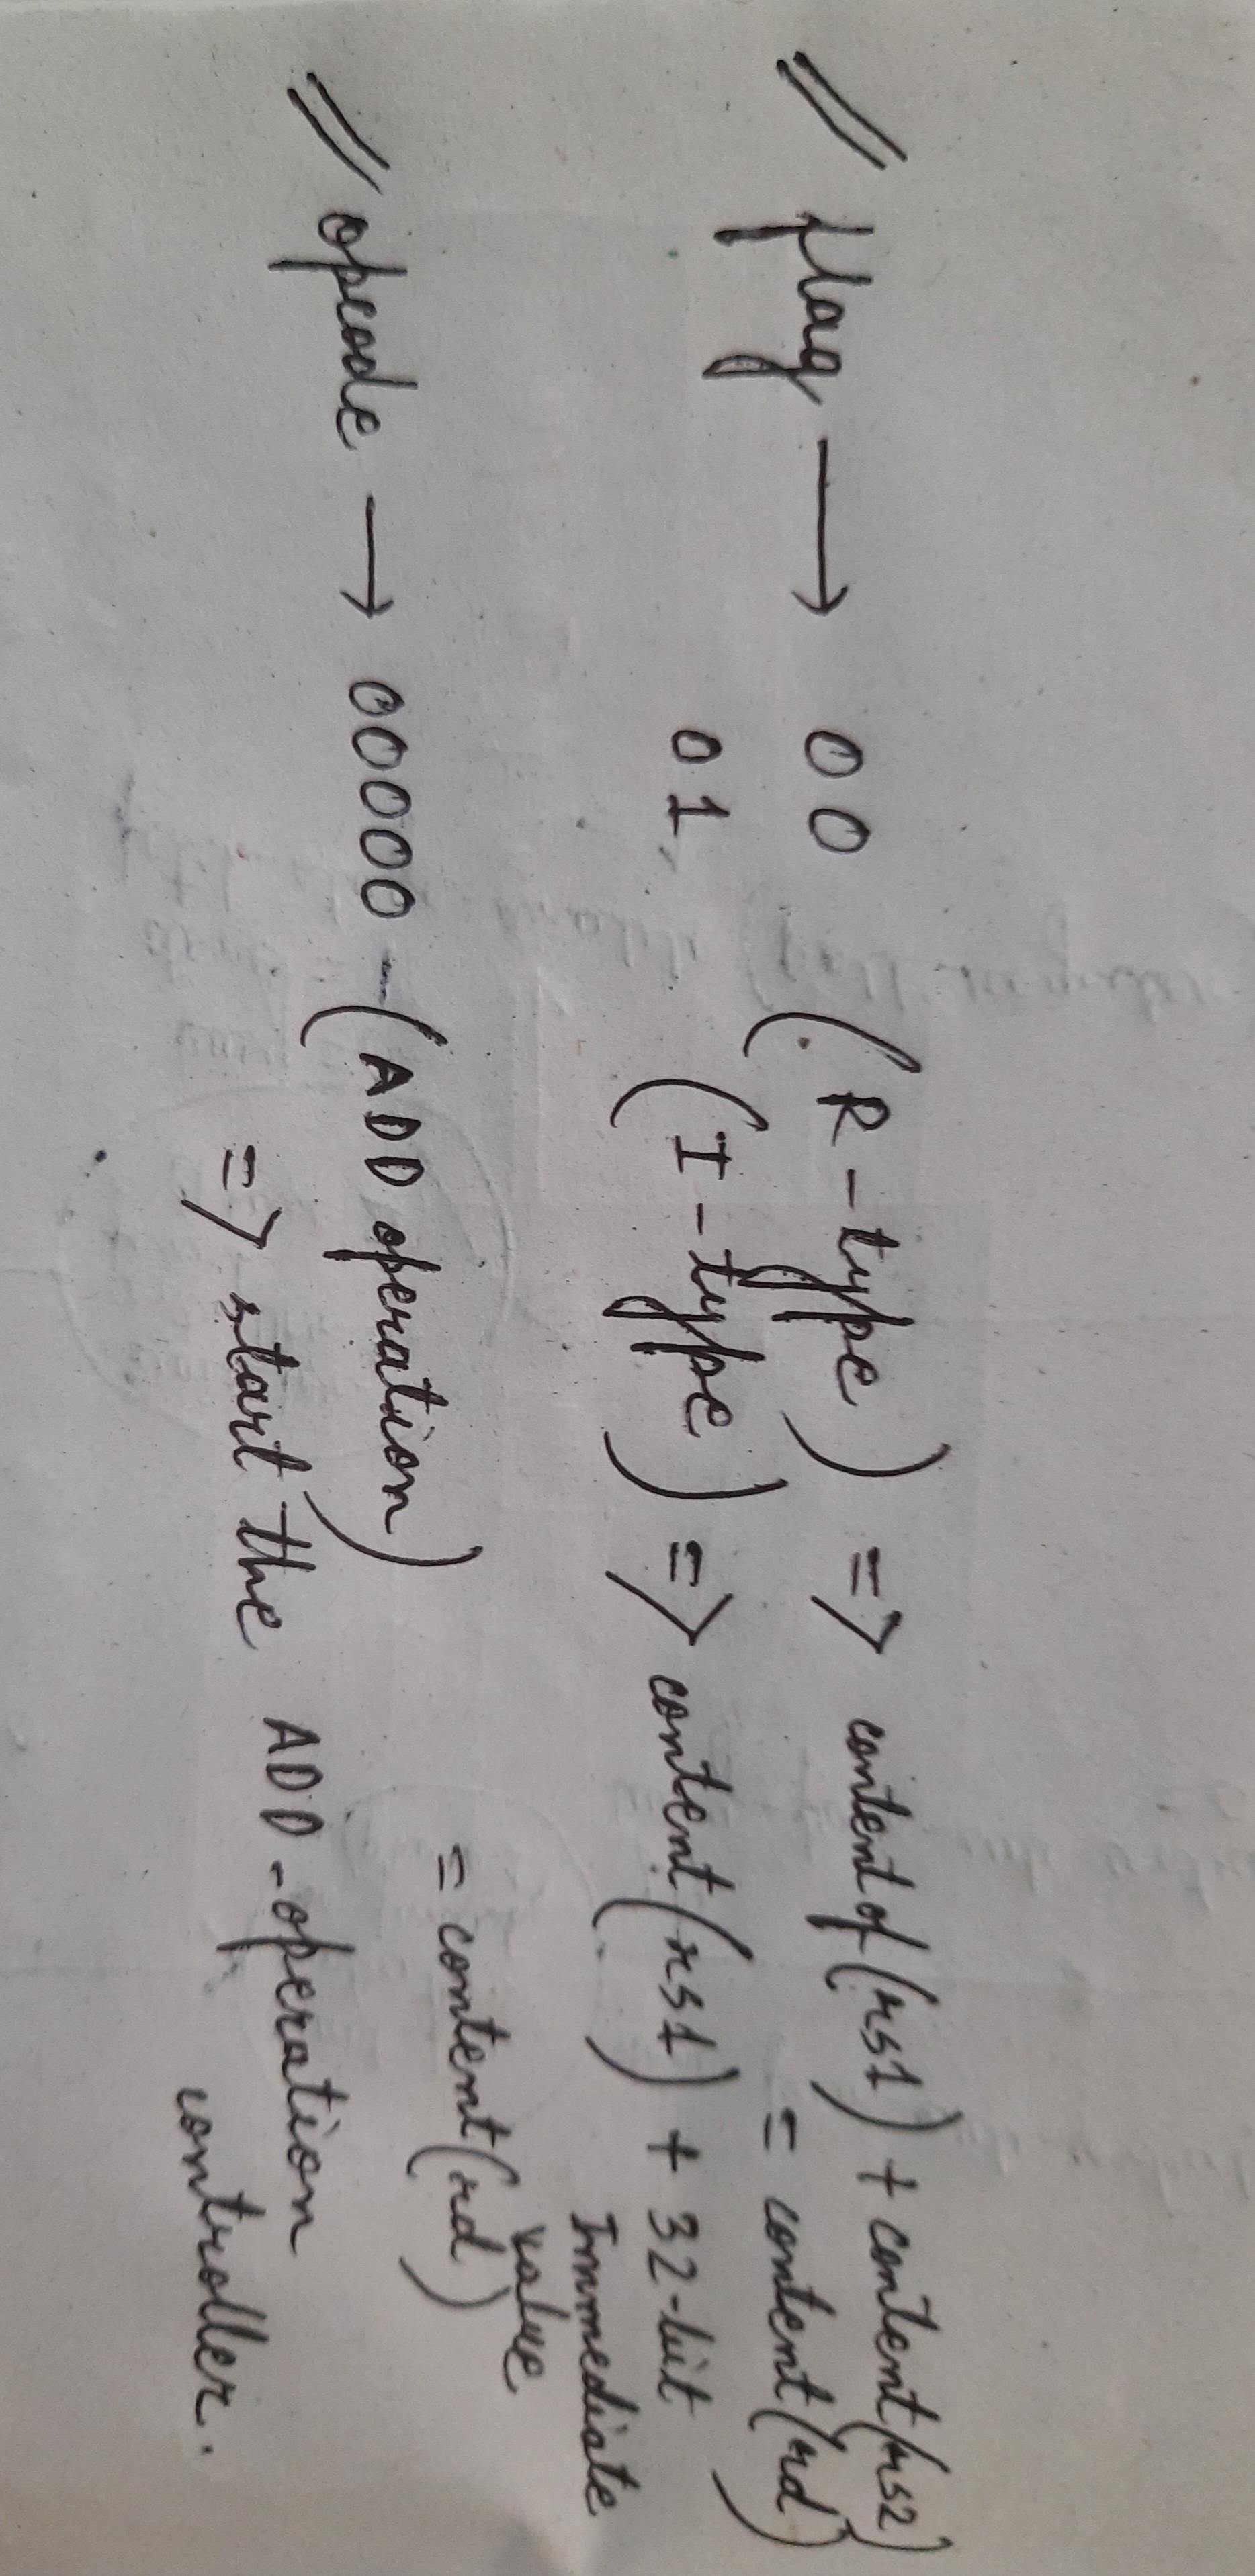 // flag → 00 (R-type) => content of (rs1) + content (rs2)
= content (rd)
01 (I-type) => content (rs1) + 32-bit
Immediate
value
= content (rd)
// opcode → 00000 - (ADD operation)
=> start the ADD-operation
controller.